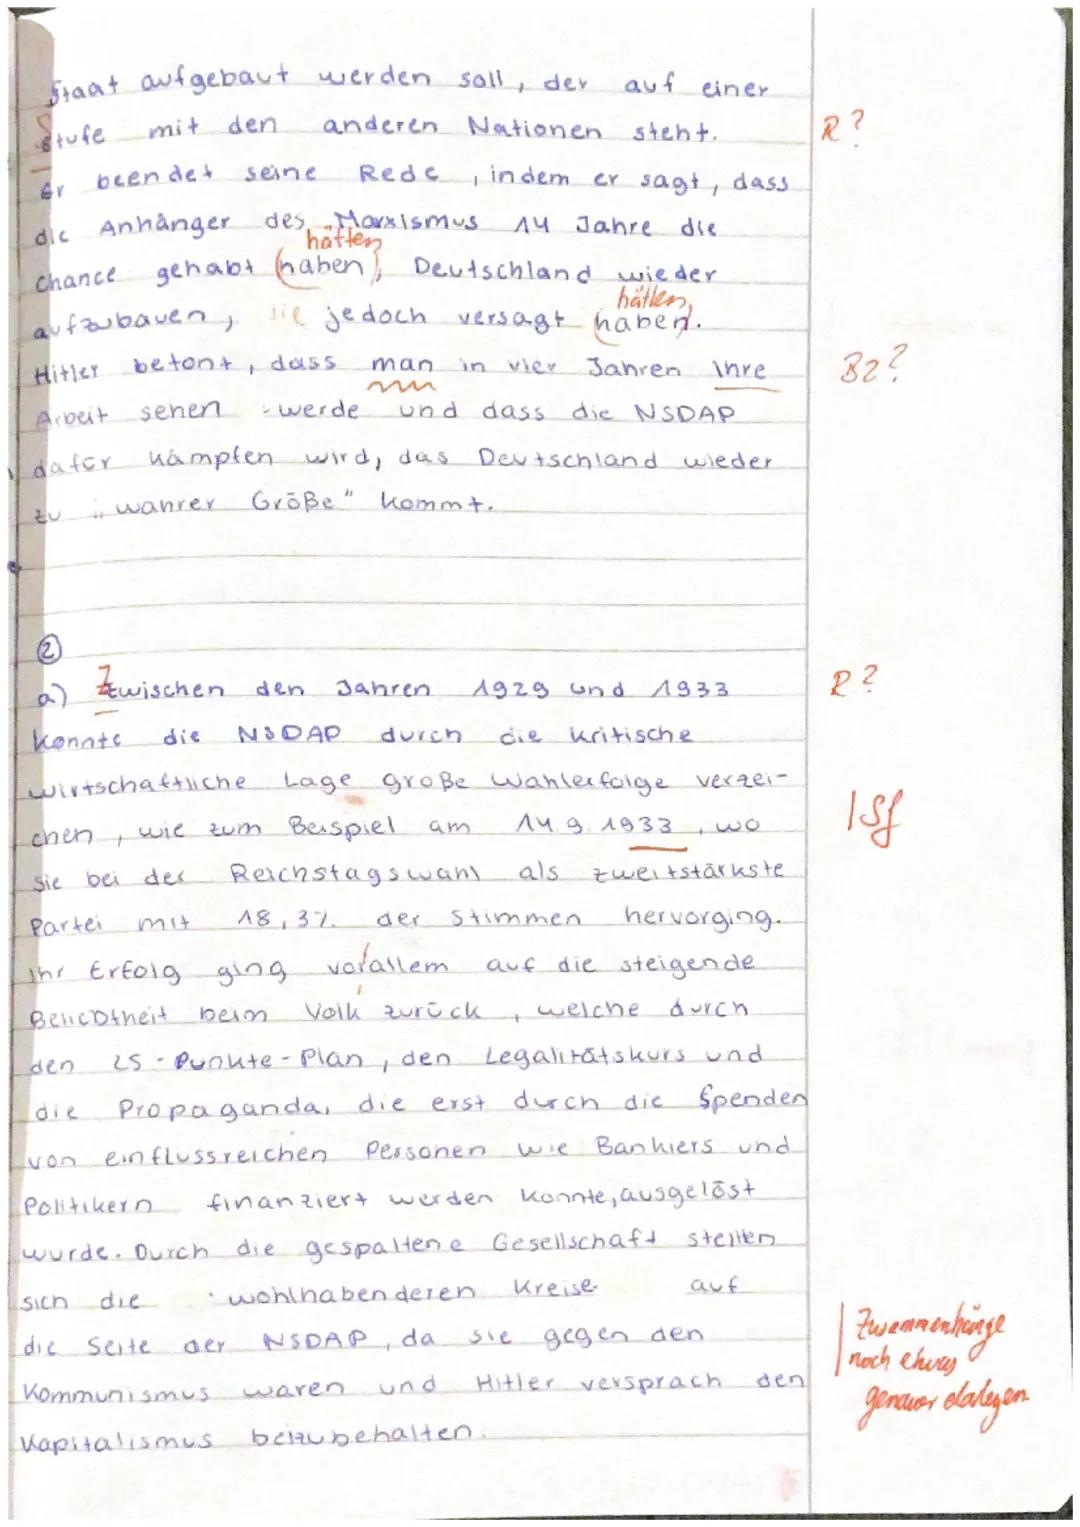 Staat aufgebaut werden soll, der auf einer
Stufe mit den anderen Nationen steht. R?
Er beendet seine Rede, indem er sagt, dass
die Anhänger des Marxismus 14 Jahre die
hätten
Chance gehabt (haben), Deutschland wieder
hätten
aufzubauen, sie jedoch versagt haben.
Hitler betont, dass man in vier Jahren ihre Bz?
Arbeit sehen werde und dass die NSDAP
dafür kämpfen wird, das Deutschland wieder
zu „wahrer Größe" kommt.
②
a) Zwischen den Jahren 1929 und 1933 R?
konnte die NSDAP durch die kritische
wirtschaftliche Lage große Wahlerfolge verzei-
chen, wie zum Beispiel am 14.9.1933, wo |Sf
sie bei der Reichstagswahl als zweitstärkste
Partei mit 18,3% der Stimmen hervorging.
Ihr Erfolg ging vorallem auf die steigende
Beliebtheit beim Volk zurück, welche durch
den 25-Punkte-Plan, den Legalitätskurs und
die Propaganda, die erst durch die Spenden
von einflussreichen Personen wie Bankiers und
Politikern finanziert werden konnte, ausgelöst
wurde. Durch die gespaltene Gesellschaft stellten
sich die wohlhabenderen Kreise auf
die Seite der NSDAP, da sie gegen den
Kommunismus waren und Hitler versprach den
Kapitalismus beizubehalten.
Zusammenhänge
noch etwas
genauer darlegen